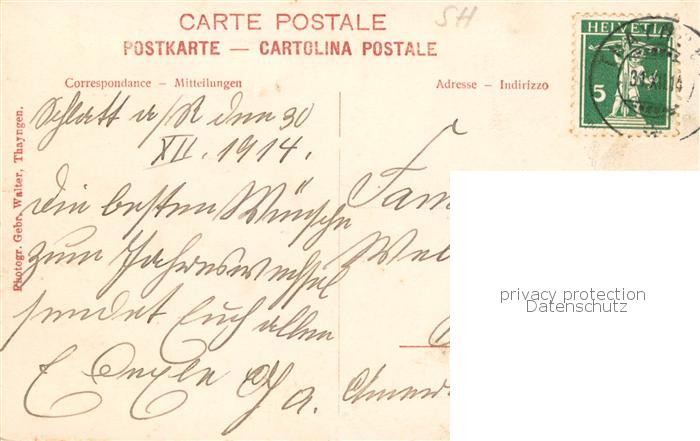 CARTE POSTALE
SH
POSTKARTE — CARTOLINA POSTALE
Correspondance – Mitteilungen
Adresse – Indirizzo
HELVETIA
5
Photogr. Gebr. Walter, Thayngen.
Schlatt a/R den 30
XII. 1914.
Die besten Wünsche
zum Jahreswechsel
sendet Euch allen
E
Fam
Wel
privacy protection
Datenschutz